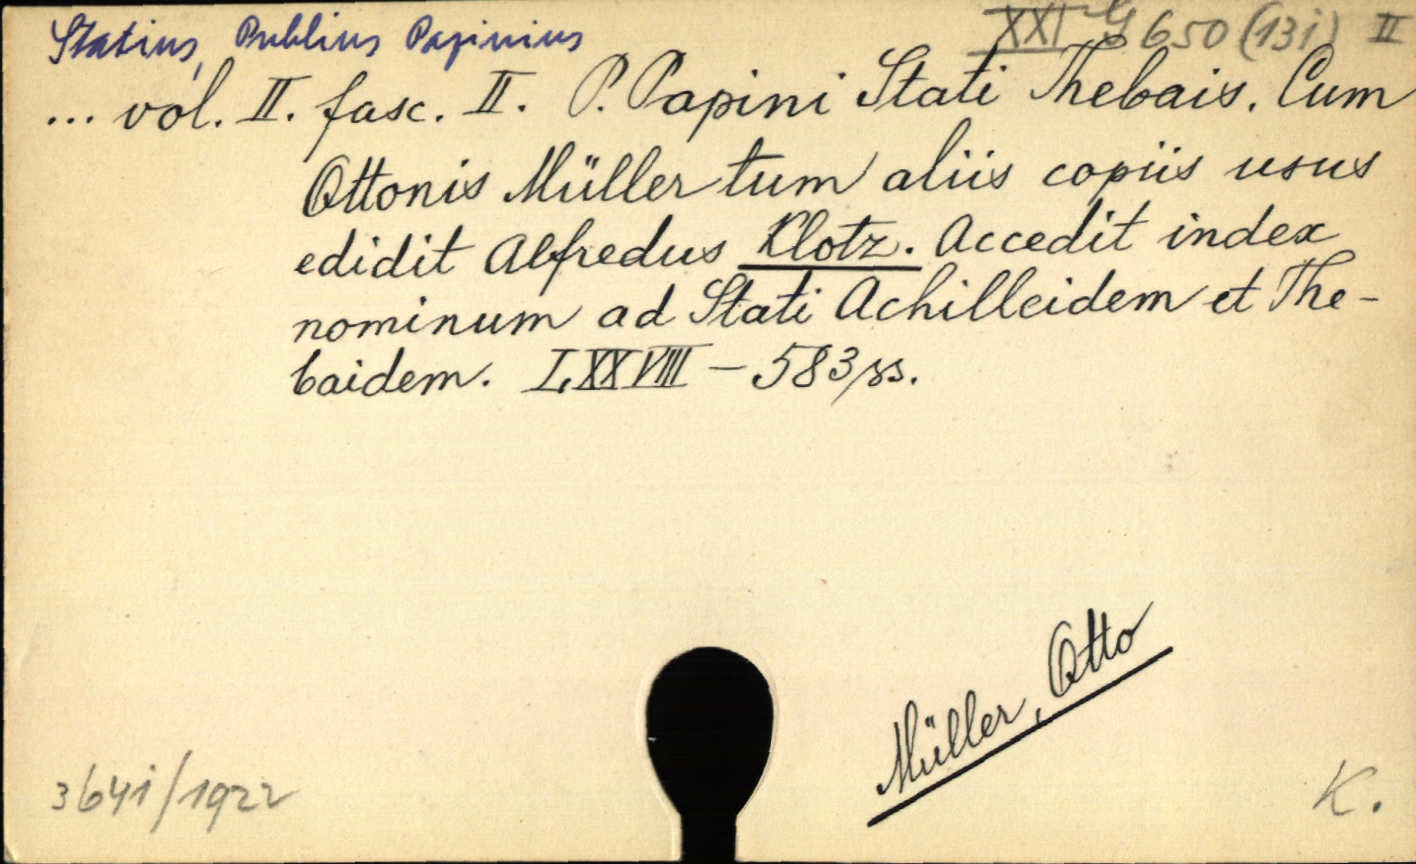 Statius, Publius Papinius
XXI G 650 (131) II
... vol. II. fasc. II. P. Papini Stati Thebais. Cum
Ottonis Müller tum aliis copiis usus
edidit Alfredus Klotz. Accedit index
nominum ad Stati Achilleidem et The-
baidem. LXXVIII – 583 ss.
Müller, Otto
3641/1922
K.